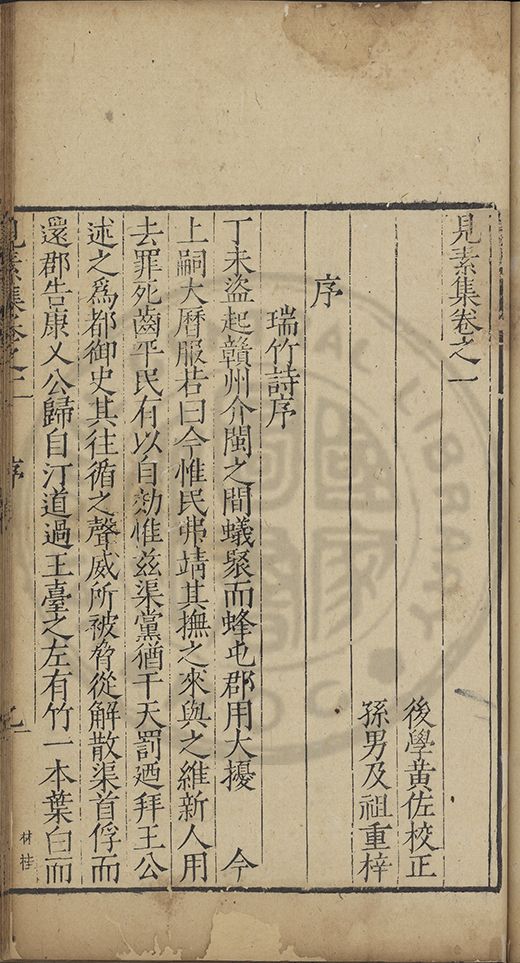 見素集卷之一
後學黃佐校正
孫男及祖重梓
序
瑞竹詩序
丁未盜起贛州介閩之間蟻聚而蜂屯郡用大擾　今
上嗣大曆服若曰今惟民弗靖其撫之來與之維新人用
去罪死齒平民有以自効惟茲渠黨猶干天罰廼拜王公
述之爲都御史其往循之聲威所被脅從解散渠首俘而
還郡告康乂公歸自汀道過王臺之左有竹一本葉白而
見素集卷之一
序
材桂